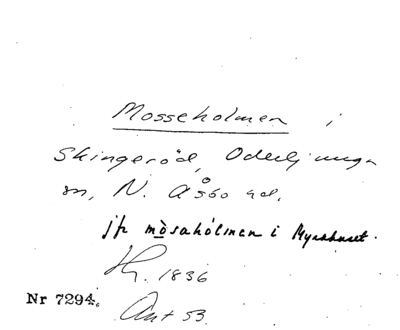 Mosseholmen i
Skingeröd, Oderljunga
sn, N. Åsbo hd.
jfr mòsahólmen i Myrahuset.
Hr. 1836
Nr 7294.
Ant 53